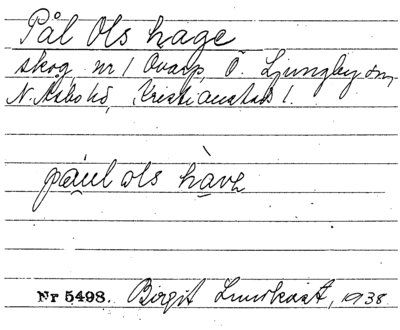 Pål Ols hage
skog, nr 1 Ovarp, Ö. Ljungby sn,
N. Åsbo hd, Kristianstads l.
pául ols hàvɛ
Nr 5498. Birgit Lundkvist, 1938